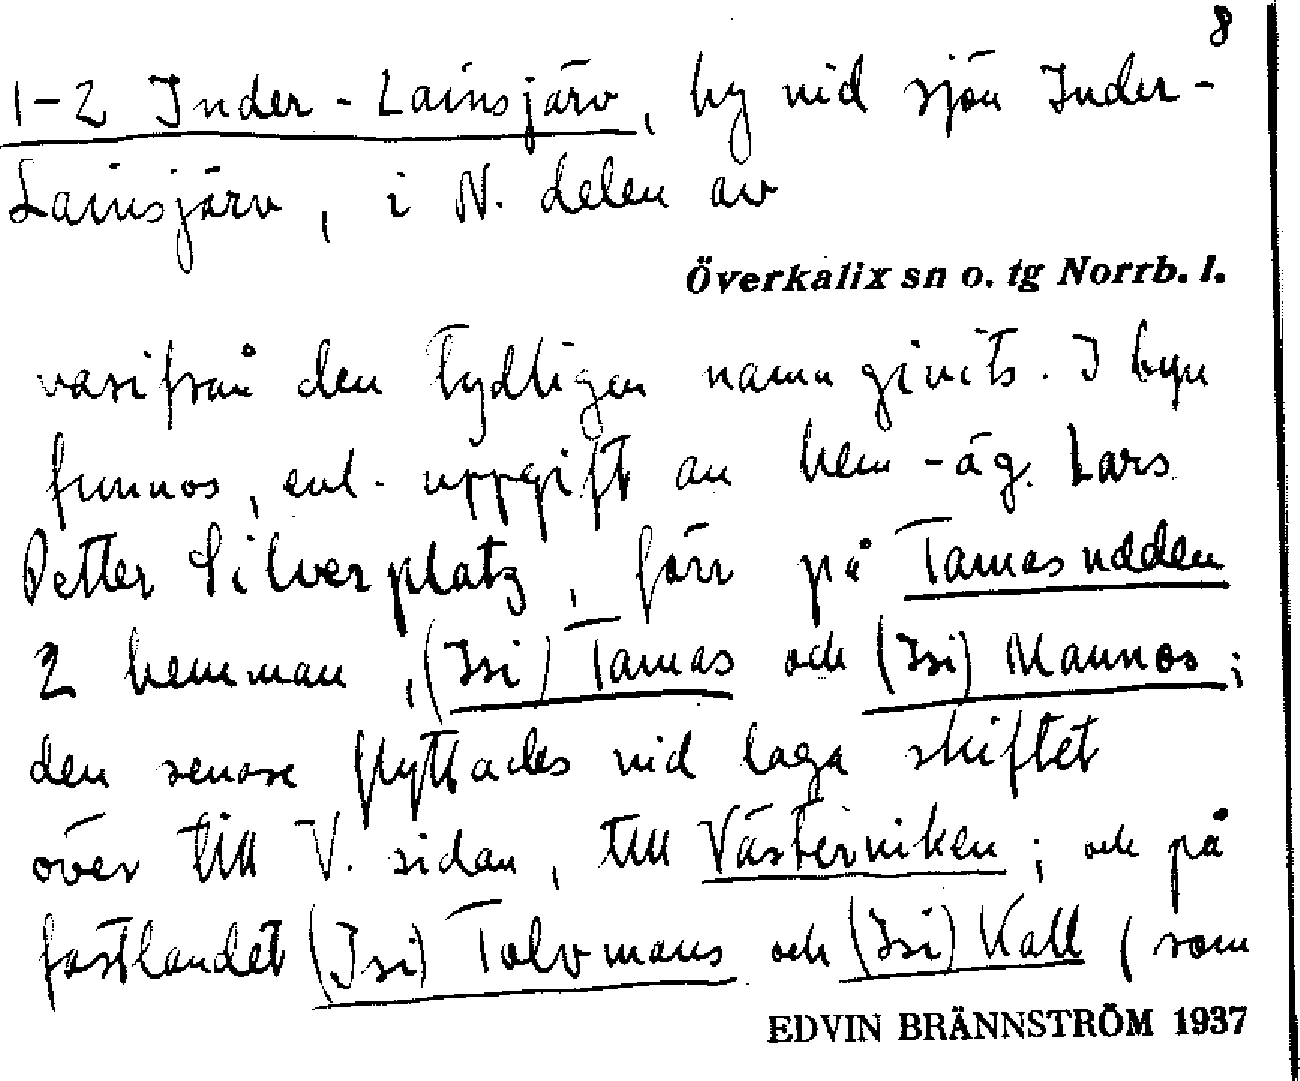 8
1-2 Inder-Lainsjärv, by vid sjön Inder-
Lainsjärv, i N. delen av
Överkalix sn o. tg Norrb. l.
varifrån den tydligen namn givits. I byn
funnos, enl. uppgift av hem-äg. Lars
Petter Silverplatz, förr på Tamasudden
2 hemman, (Isi) Tamas och (Isi) Mannos;
den senare flyttades vid laga skiftet
över till V. sidan, till Västerviken; och på
fastlandet (Isi) Tolvmans och (Isi) Kall (som
EDVIN BRÄNNSTRÖM 1937